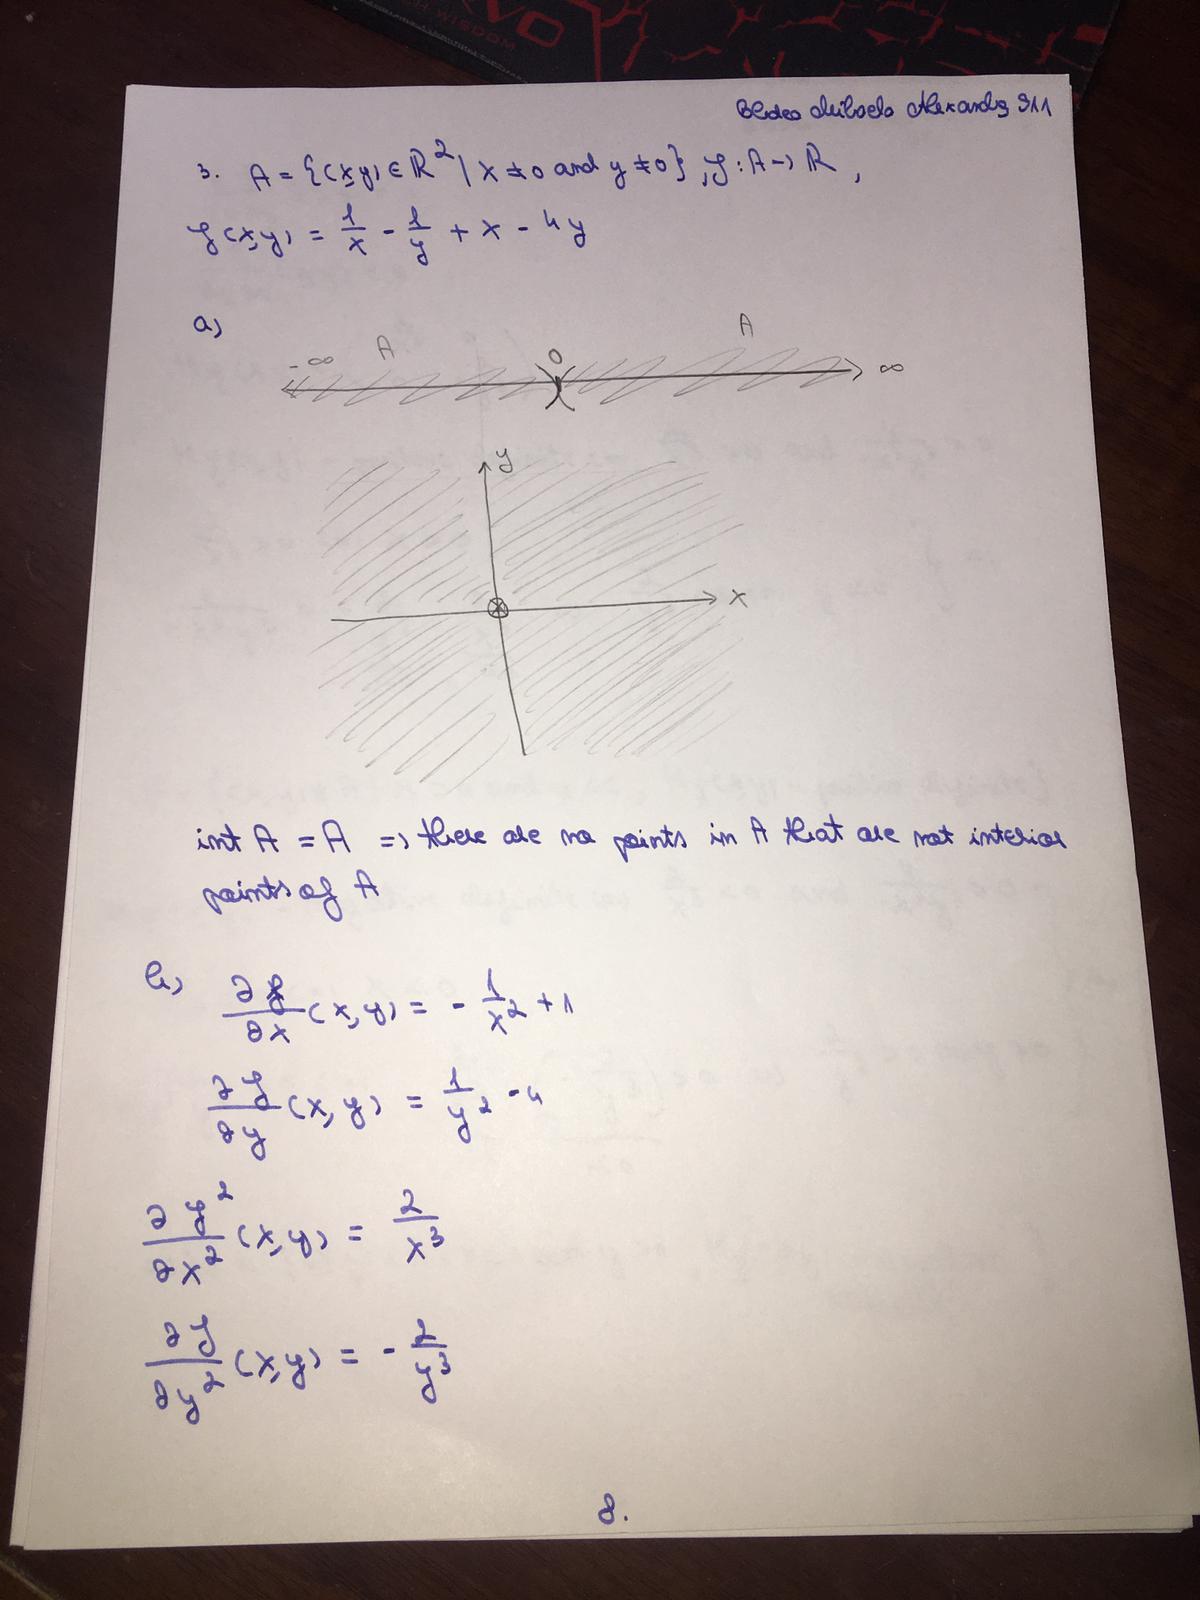 911
3. A = {(x,y) ∈ ℝ² | x ≠ 0 and y ≠ 0}, f : A → ℝ,
f(x,y) = 1/x - 1/y + x - 4y
a)
-∞ A 0 A ∞
y
x
int A = A => there are no points in A that are not interior
points of A
b) ∂f/∂x (x,y) = - 1/x² + 1
∂f/∂y (x,y) = 1/y² - 4
∂f²/∂x² (x,y) = 2/x³
∂f/∂y² (x,y) = - 2/y³
8.